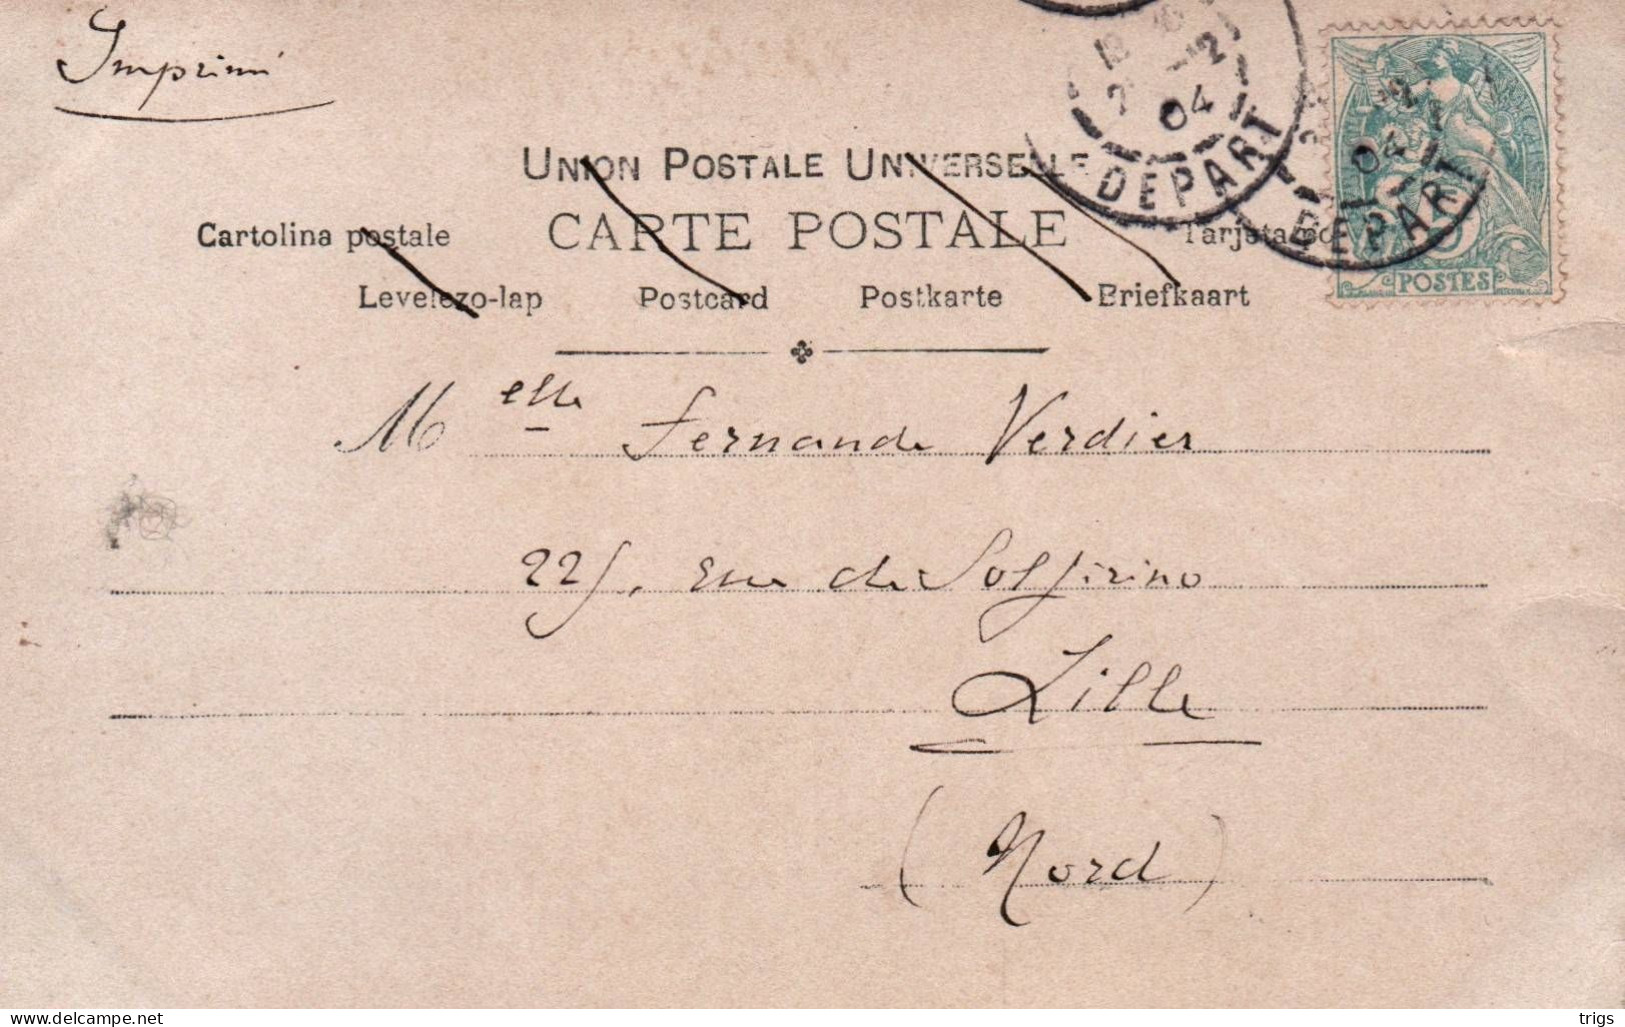 Imprimé
UNION POSTALE UNIVERSELLE
CARTE POSTALE
Cartolina postale
Tarjeta po
Levelezo-lap Postcard Postkarte Briefkaart
12
04
DEPART
04
DEPART
5
POSTES
Melle Fernande Verdier
225, rue de Solférino
Lille
(Nord)
delcampe.net
trigs